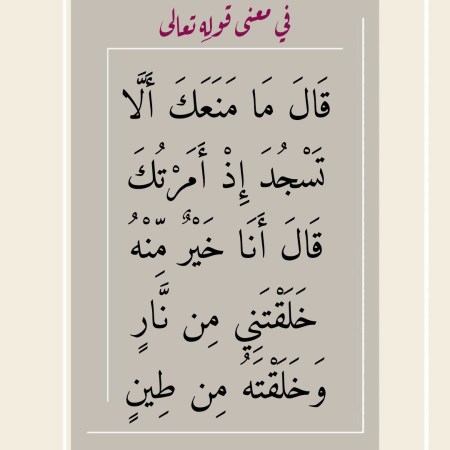 في معنى قوله تعالى
قَالَ مَا مَنَعَكَ أَلَّا
تَسْجُدَ إِذْ أَمَرْتُكَ
قَالَ أَنَا خَيْرٌ مِّنْهُ
خَلَقْتَنِي مِن نَّارٍ
وَخَلَقْتَهُ مِن طِينٍ